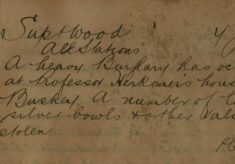 Supt Wood
All Stations
A heavy Burglary has oc
at Professor Herkomer's hous
Bushey A number of l
silver bowls & other valu
stolen